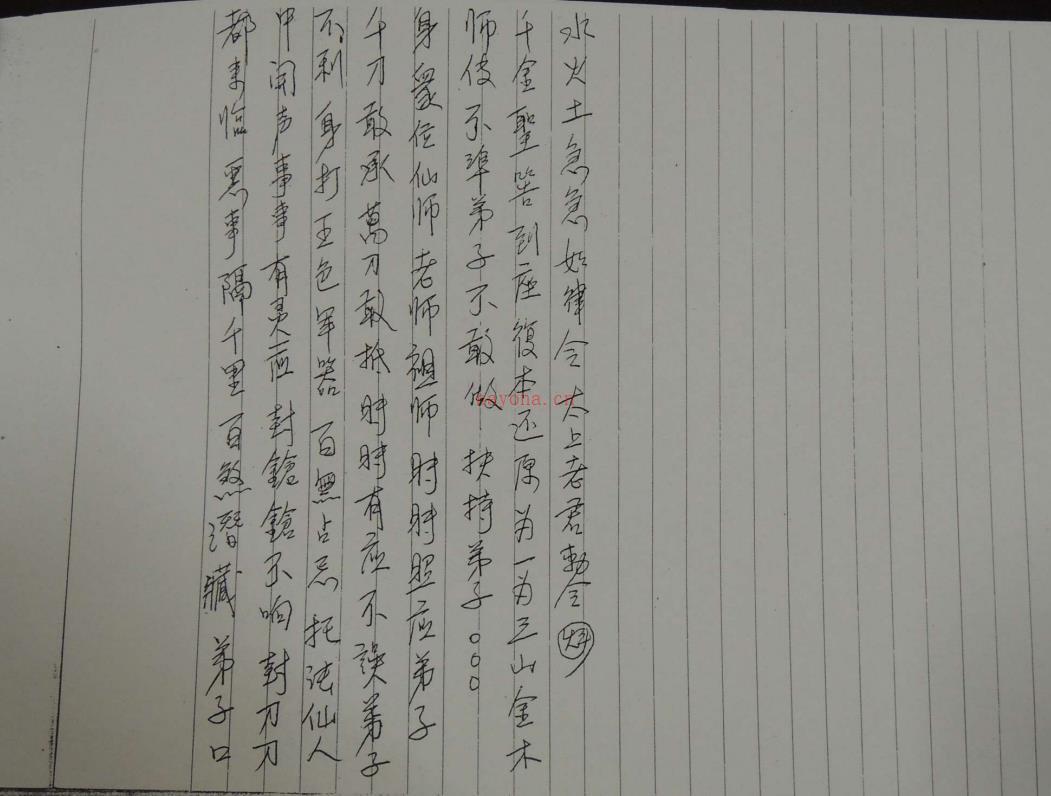 都来临 恶事隔千里 百煞潜藏 弟子口
中闻声事事有灵应 封鎗鎗不响 封刀刀
不利身打五色军器 百無占忌 托法仙人
千刀敢承萬刀敢抵時時有应不误弟子
身眾位仙师老师祖师 時時照应弟子
师傅不準弟子不敢做 扶持弟子○○○
千金聖筶到座復本还原为一为三山金木
水火土急急如律令太上老君勅令
nayona.cn